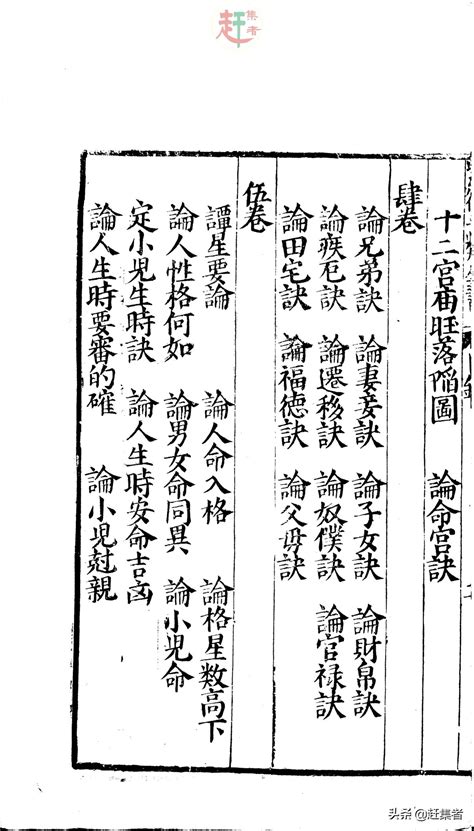 赶集者
十二宫庙旺落陷圖　論命宫訣
肆卷
論兄弟訣　論妻妾訣　論子女訣　論財帛訣
論疾厄訣　論遷移訣　論奴僕訣　論官禄訣
論田宅訣　論福德訣　論父母訣
伍卷
譚星要論　論人命入格　論格星數高下
論人性格何如　論男女命同異　論小児命
定小児生時訣　論人生時安命吉凶
論人生時要審的確　論小児尅親
头条@赶集者